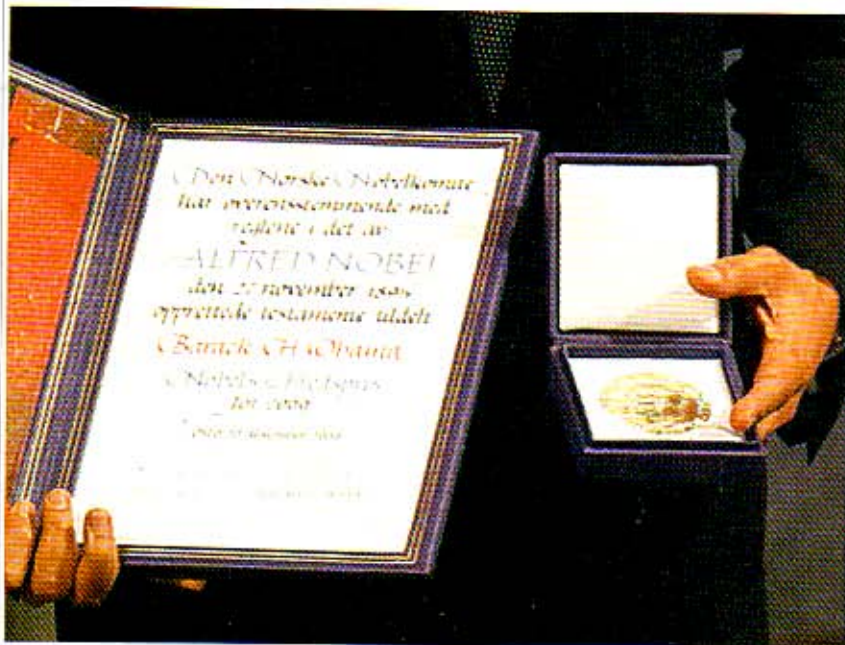 Den Norske Nobelkomite
har overensstemmende med
reglene i det av
ALFRED NOBEL
den 27 november 1895
opprettede testamente tildelt
Barack H Obama
Nobels Fredspris
for 2009
Oslo 10 desember 2009